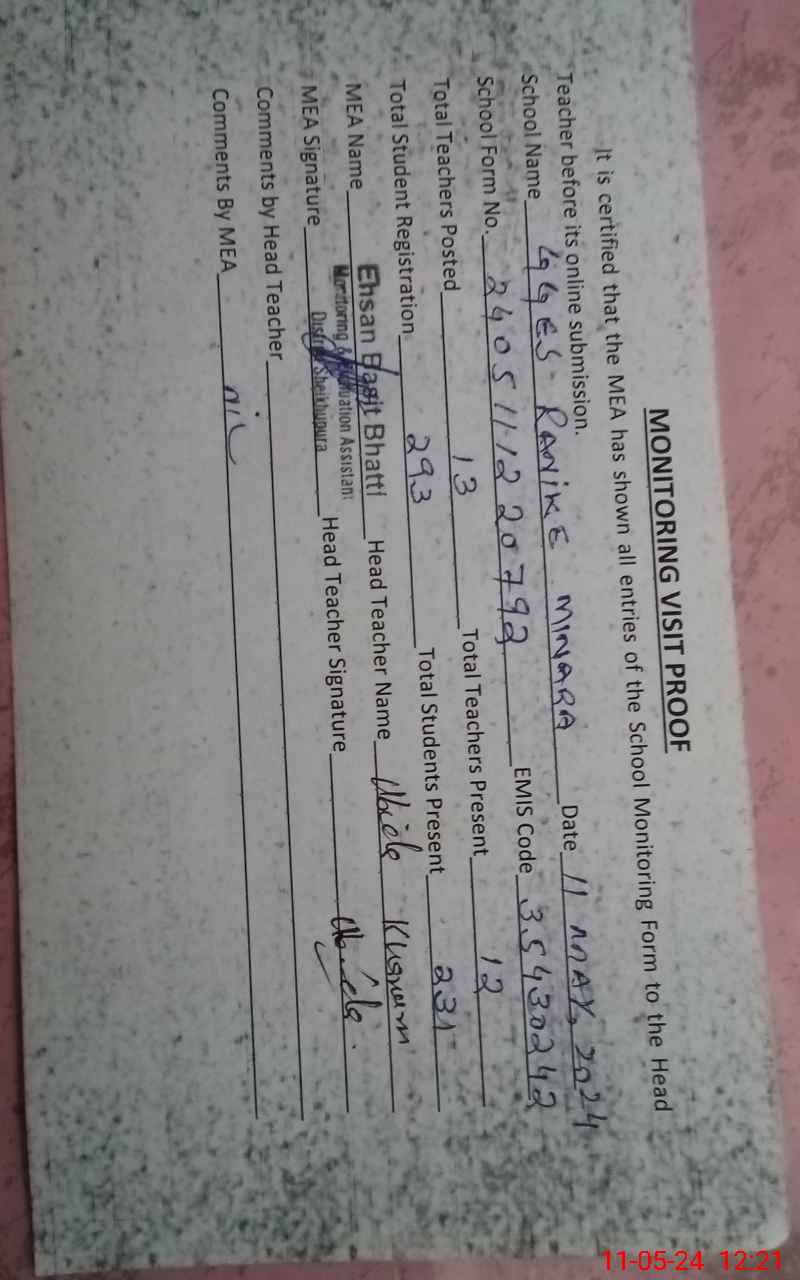 MONITORING VISIT PROOF
It is certified that the MEA has shown all entries of the School Monitoring Form to the Head
Teacher before its online submission.
School Name GGES RANIKE MINARA Date 11 MAY, 2024
School Form No. 24051112 20792 EMIS Code 35430242
Total Teachers Posted 13 Total Teachers Present 12
Total Student Registration 293 Total Students Present 231
MEA Name Ehsan Basit Bhatti Head Teacher Name Khanum
Monitoring & Evaluation Assistant
MEA Signature District Sheikhupura Head Teacher Signature
Comments by Head Teacher
Comments By MEA nil
11-05-24 12:21